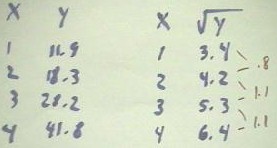 X Y X √Y
1 11.9 1 3.4
.8
2 18.3 2 4.2
1.1
3 28.2 3 5.3
1.1
4 41.8 4 6.4